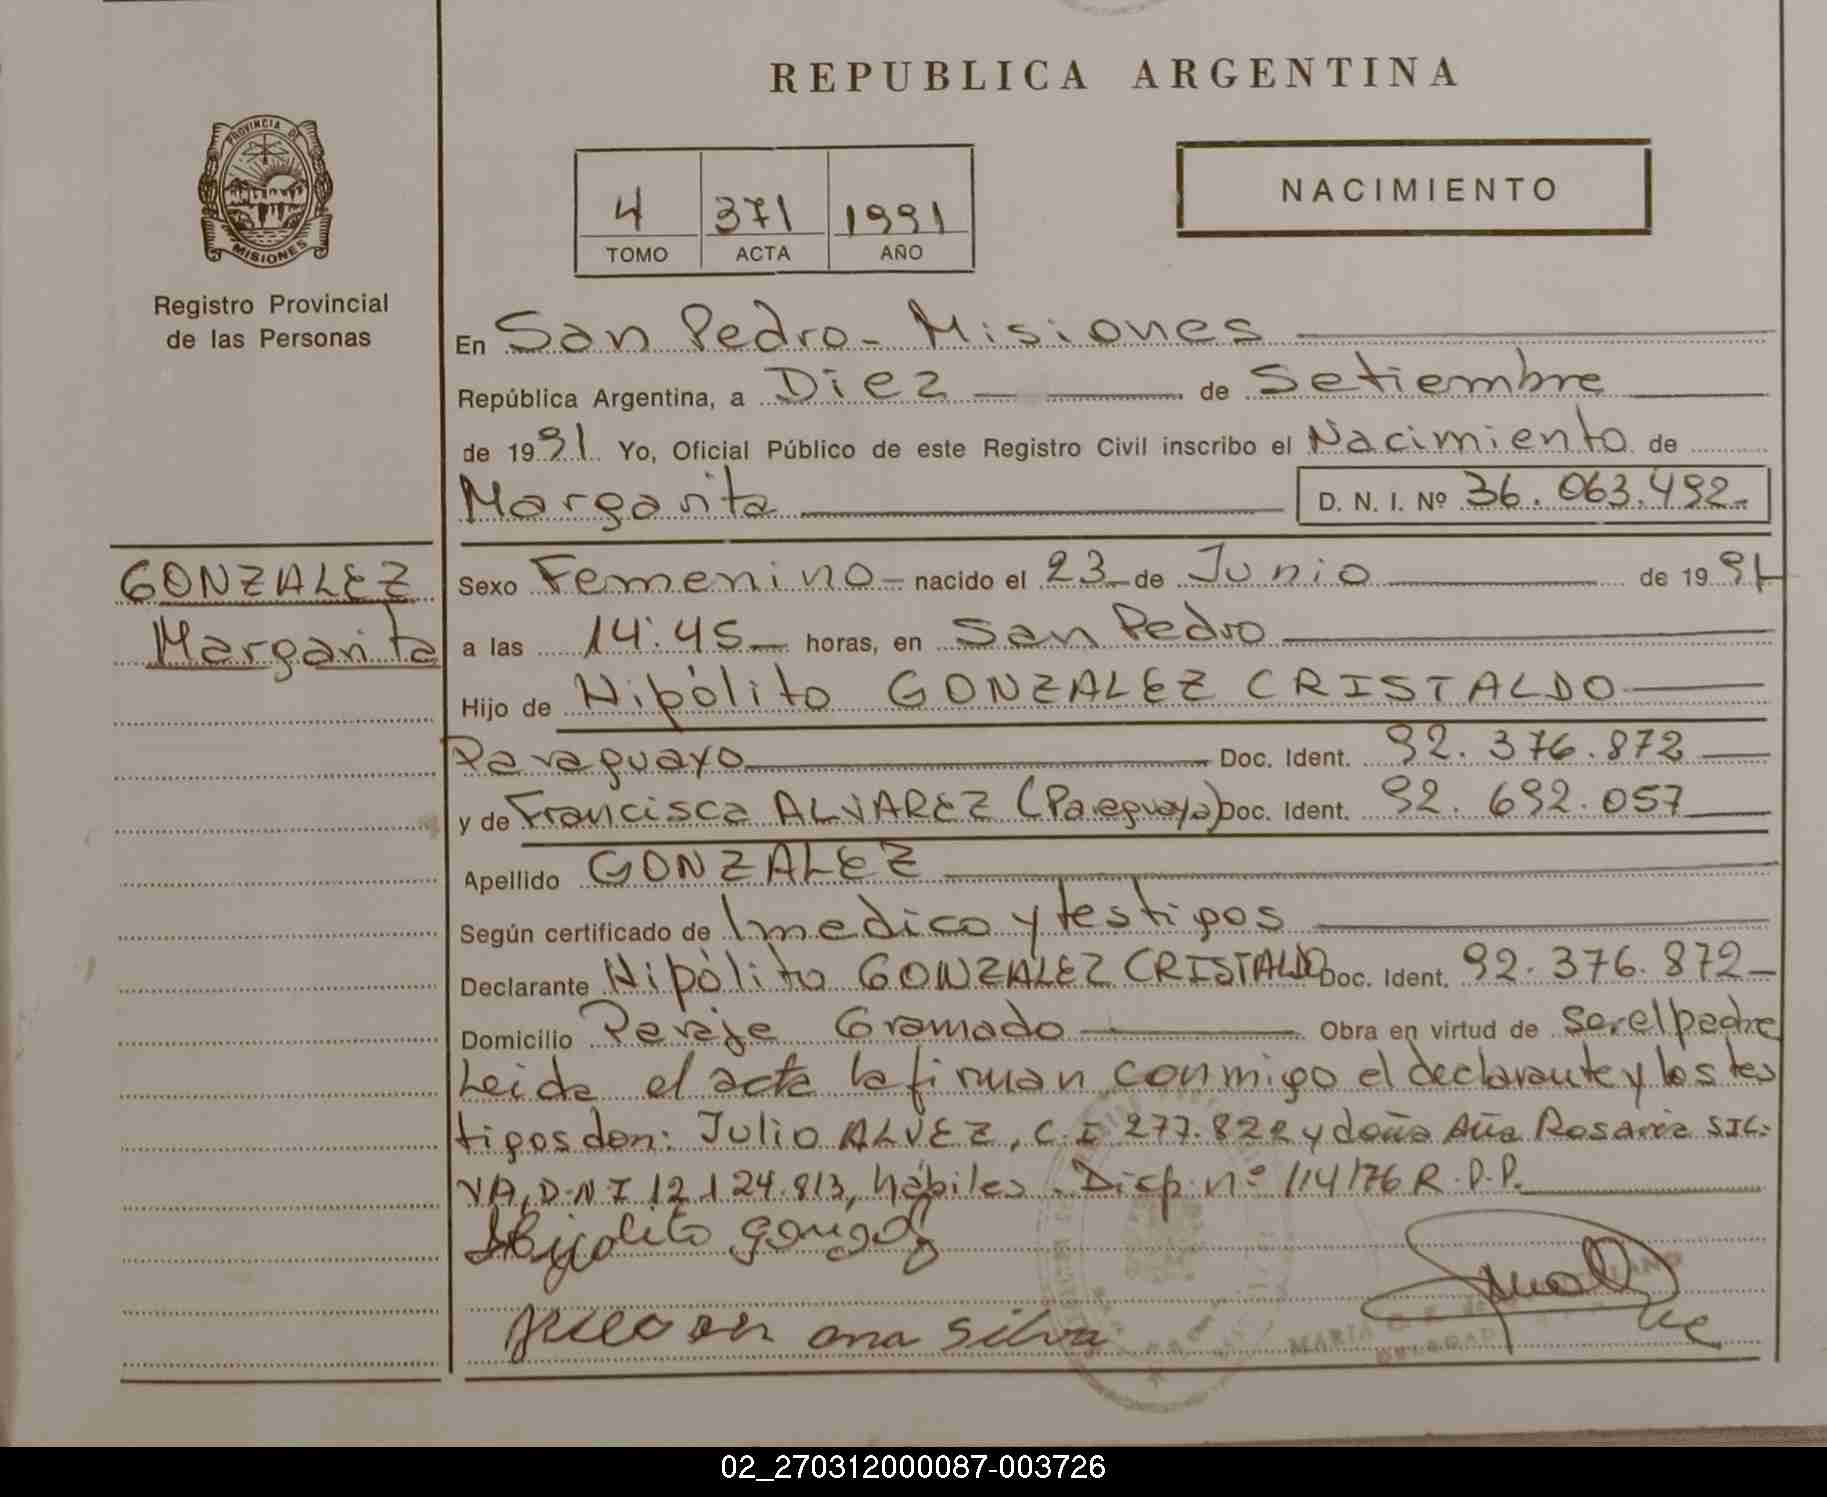 REPUBLICA ARGENTINA
PROVINCIA DE
MISIONES
Registro Provincial
de las Personas
4 371 1991
TOMO ACTA AÑO
NACIMIENTO
En San Pedro - Misiones
República Argentina, a Diez de Setiembre
de 1991. Yo, Oficial Público de este Registro Civil inscribo el Nacimiento de
Margarita D. N. I. Nº 36.063.492.-
GONZALEZ
Margarita
Sexo Femenino - nacido el 23 de Junio de 1991
a las 14:45 horas, en San Pedro
Hijo de Hipólito GONZALEZ CRISTALDO
Paraguayo Doc. Ident. 92.376.872
y de Francisca ALVAREZ (Paraguaya) Doc. Ident. 92.692.057
Apellido GONZALEZ
Según certificado de 1 medico y testigos
Declarante Hipólito GONZALEZ CRISTALDO Doc. Ident. 92.376.872
Domicilio Paraje Gramado Obra en virtud de ser el padre
Leida el acta la firman conmigo el declarante y los tes
tigos don: Julio ALVEZ, C.I 277.822 y doña Aña Rosaria SIL-
VA, D.N.I 12.124.813, hábiles. Disp. nº 114/76 R.P.P.
Hipolito
ana silva
MARIA
02_270312000087-003726